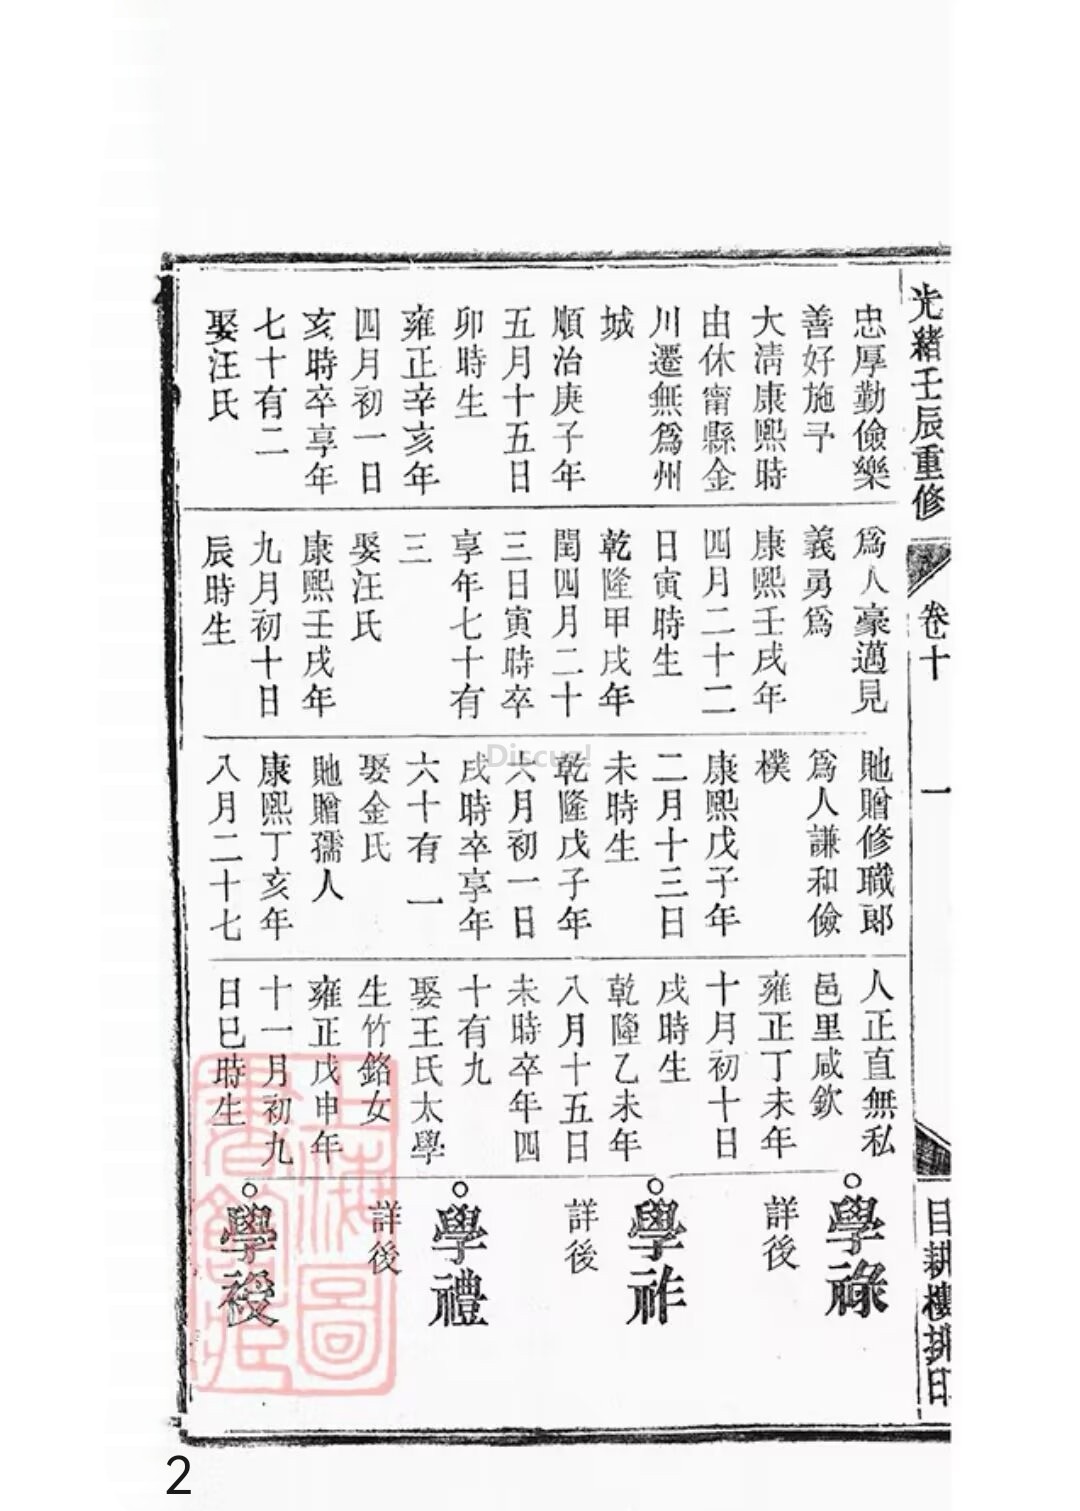 光緒壬辰重修
卷十
一
目耕樓排印
忠厚勤儉樂
善好施予
大清康熙時
由休甯縣金
川遷無爲州
城
順治庚子年
五月十五日
卯時生
雍正辛亥年
四月初一日
亥時卒享年
七十有二
娶汪氏
爲人豪邁見
義勇爲
康熙壬戌年
四月二十二
日寅時生
乾隆甲戌年
閏四月二十
三日寅時卒
享年七十有
三
娶汪氏
康熙壬戌年
九月初十日
辰時生
貤贈修職郎
爲人謙和儉
樸
康熙戊子年
二月十三日
未時生
乾隆戊子年
六月初一日
戌時卒享年
六十有一
娶金氏
貤贈孺人
康熙丁亥年
八月二十七
人正直無私
邑里咸欽
雍正丁未年
十月初十日
戌時生
乾隆乙未年
八月十五日
未時卒年四
十有九
娶王氏太學
生竹銘女
雍正戊申年
十一月初九
日巳時生
學祿
詳後
學祚
詳後
學禮
詳後
學祲
上海圖
書館藏
Discuz!
2